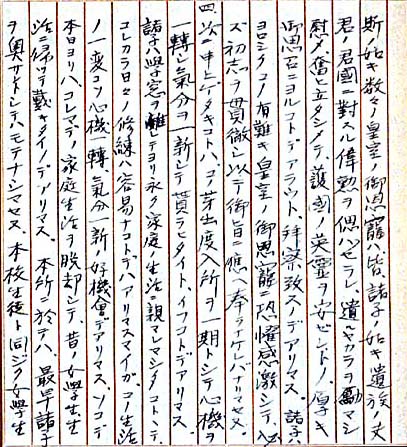 斯ノ如キ数々ノ皇室ノ御恩寵ハ皆、諸子ノ如キ遺族ノ丈
君ノ君國ニ對スル偉勲ヲ偲バセラレ、遺レルカラヲ勵マシ
慰メ奮ヒ立タシメテ、護國ノ英霊ヲ安ゼントノ厚キ
御思召ニヨルコトデアラウト、拝察致スノデアリマス。諸子
ヨロシクコノ有難キ皇室ノ御恩寵ニ恐懼感激シテ、必
ズ初志ヲ貫徹シ以テ御旨ニ應ヘ奉ラナケレバナリマセヌ。
四、次ニ申上ゲタキコトハ、コノ芽出度入所ヲ一期トシテ心機ヲ
一轉シ氣分ヲ一新シテ貰ヒタイト、イフコトデアリマス。
諸子ハ學窓ヲ離レテヨリ永ク家庭ノ生活ニ親マレマシタコトトテ、
コレカラ日々ノ修練ハ容易ナコトデハアリマスマイガ、コノ生活
ノ一変コソ心機一轉、氣分一新ノ好機會デアリマス。ソコデ
本日ヨリハ、コレマデノ家庭生活ヲ脱却シテ、昔ノ女學生生
活ニ帰ツテ戴キタイノデアリマス。本所ニ於テハ、最早諸子
ヲ奥サントシテハモテナシマセヌ。本校生徒ト同ジク女學生